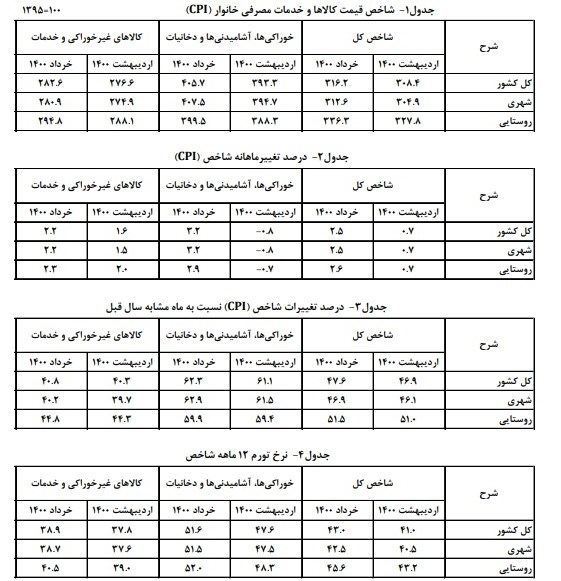 جدول۱- شاخص قیمت کالاها و خدمات مصرفی خانوار (CPI) ۱۳۹۵=۱۰۰
شرح شاخص کل خوراکی‌ها، آشامیدنی‌ها و دخانیات کالاهای غیرخوراکی و خدمات
اردیبهشت ۱۴۰۰ خرداد ۱۴۰۰ اردیبهشت ۱۴۰۰ خرداد ۱۴۰۰ اردیبهشت ۱۴۰۰ خرداد ۱۴۰۰
کل کشور ۳۰۸.۴ ۳۱۶.۲ ۳۹۳.۳ ۴۰۵.۷ ۲۷۶.۶ ۲۸۲.۶
شهری ۳۰۴.۹ ۳۱۲.۶ ۳۹۴.۷ ۴۰۷.۵ ۲۷۴.۹ ۲۸۰.۹
روستایی ۳۲۷.۸ ۳۳۶.۳ ۳۸۸.۳ ۳۹۹.۵ ۲۸۸.۱ ۲۹۴.۸
جدول۲- درصد تغییرماهانه شاخص (CPI)
شرح شاخص کل خوراکی‌ها، آشامیدنی‌ها و دخانیات کالاهای غیرخوراکی و خدمات
اردیبهشت ۱۴۰۰ خرداد ۱۴۰۰ اردیبهشت ۱۴۰۰ خرداد ۱۴۰۰ اردیبهشت ۱۴۰۰ خرداد ۱۴۰۰
کل کشور ۰.۷ ۲.۵ -۰.۸ ۳.۲ ۱.۶ ۲.۲
شهری ۰.۷ ۲.۵ -۰.۸ ۳.۲ ۱.۵ ۲.۲
روستایی ۰.۷ ۲.۶ -۰.۷ ۲.۹ ۲.۰ ۲.۳
جدول۳- درصد تغییرات شاخص (CPI) نسبت به ماه مشابه سال قبل
شرح شاخص کل خوراکی‌ها، آشامیدنی‌ها و دخانیات کالاهای غیرخوراکی و خدمات
اردیبهشت ۱۴۰۰ خرداد ۱۴۰۰ اردیبهشت ۱۴۰۰ خرداد ۱۴۰۰ اردیبهشت ۱۴۰۰ خرداد ۱۴۰۰
کل کشور ۴۶.۹ ۴۷.۶ ۶۱.۱ ۶۲.۳ ۴۰.۳ ۴۰.۸
شهری ۴۶.۱ ۴۶.۹ ۶۱.۵ ۶۲.۹ ۳۹.۷ ۴۰.۲
روستایی ۵۱.۰ ۵۱.۵ ۵۹.۴ ۵۹.۹ ۴۴.۳ ۴۴.۸
جدول۴- نرخ تورم ۱۲ماهه شاخص
شرح شاخص کل خوراکی‌ها، آشامیدنی‌ها و دخانیات کالاهای غیرخوراکی و خدمات
اردیبهشت ۱۴۰۰ خرداد ۱۴۰۰ اردیبهشت ۱۴۰۰ خرداد ۱۴۰۰ اردیبهشت ۱۴۰۰ خرداد ۱۴۰۰
کل کشور ۴۱.۰ ۴۳.۰ ۴۷.۶ ۵۱.۶ ۳۷.۸ ۳۸.۹
شهری ۴۰.۵ ۴۲.۵ ۴۷.۵ ۵۱.۵ ۳۷.۶ ۳۸.۷
روستایی ۴۳.۲ ۴۵.۶ ۴۸.۳ ۵۲.۰ ۳۹.۰ ۴۰.۵